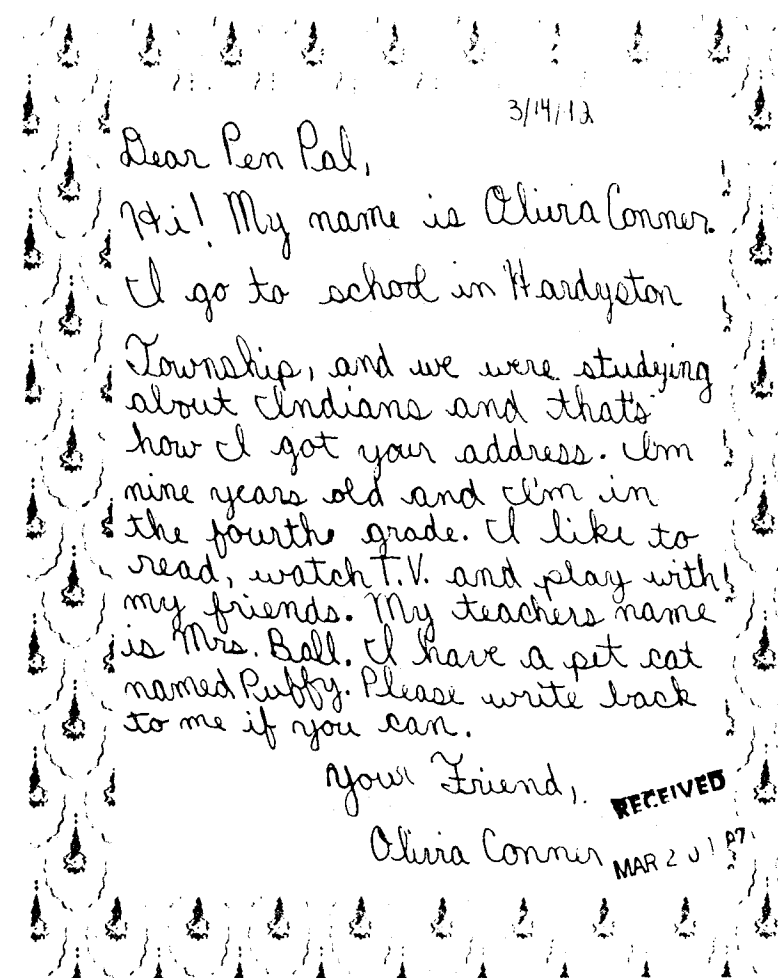 3/14/92
Dear Pen Pal,
Hi! My name is Olivia Conner.
I go to school in Hardyston
Township, and we were studying
about Indians and that's
how I got your address. I'm
nine years old and I'm in
the fourth grade. I like to
read, watch T.V. and play with
my friends. My teachers name
is Mrs. Ball. I have a pet cat
named Puffy. Please write back
to me if you can.
Your Friend,
RECEIVED
Olivia Conner
MAR 2